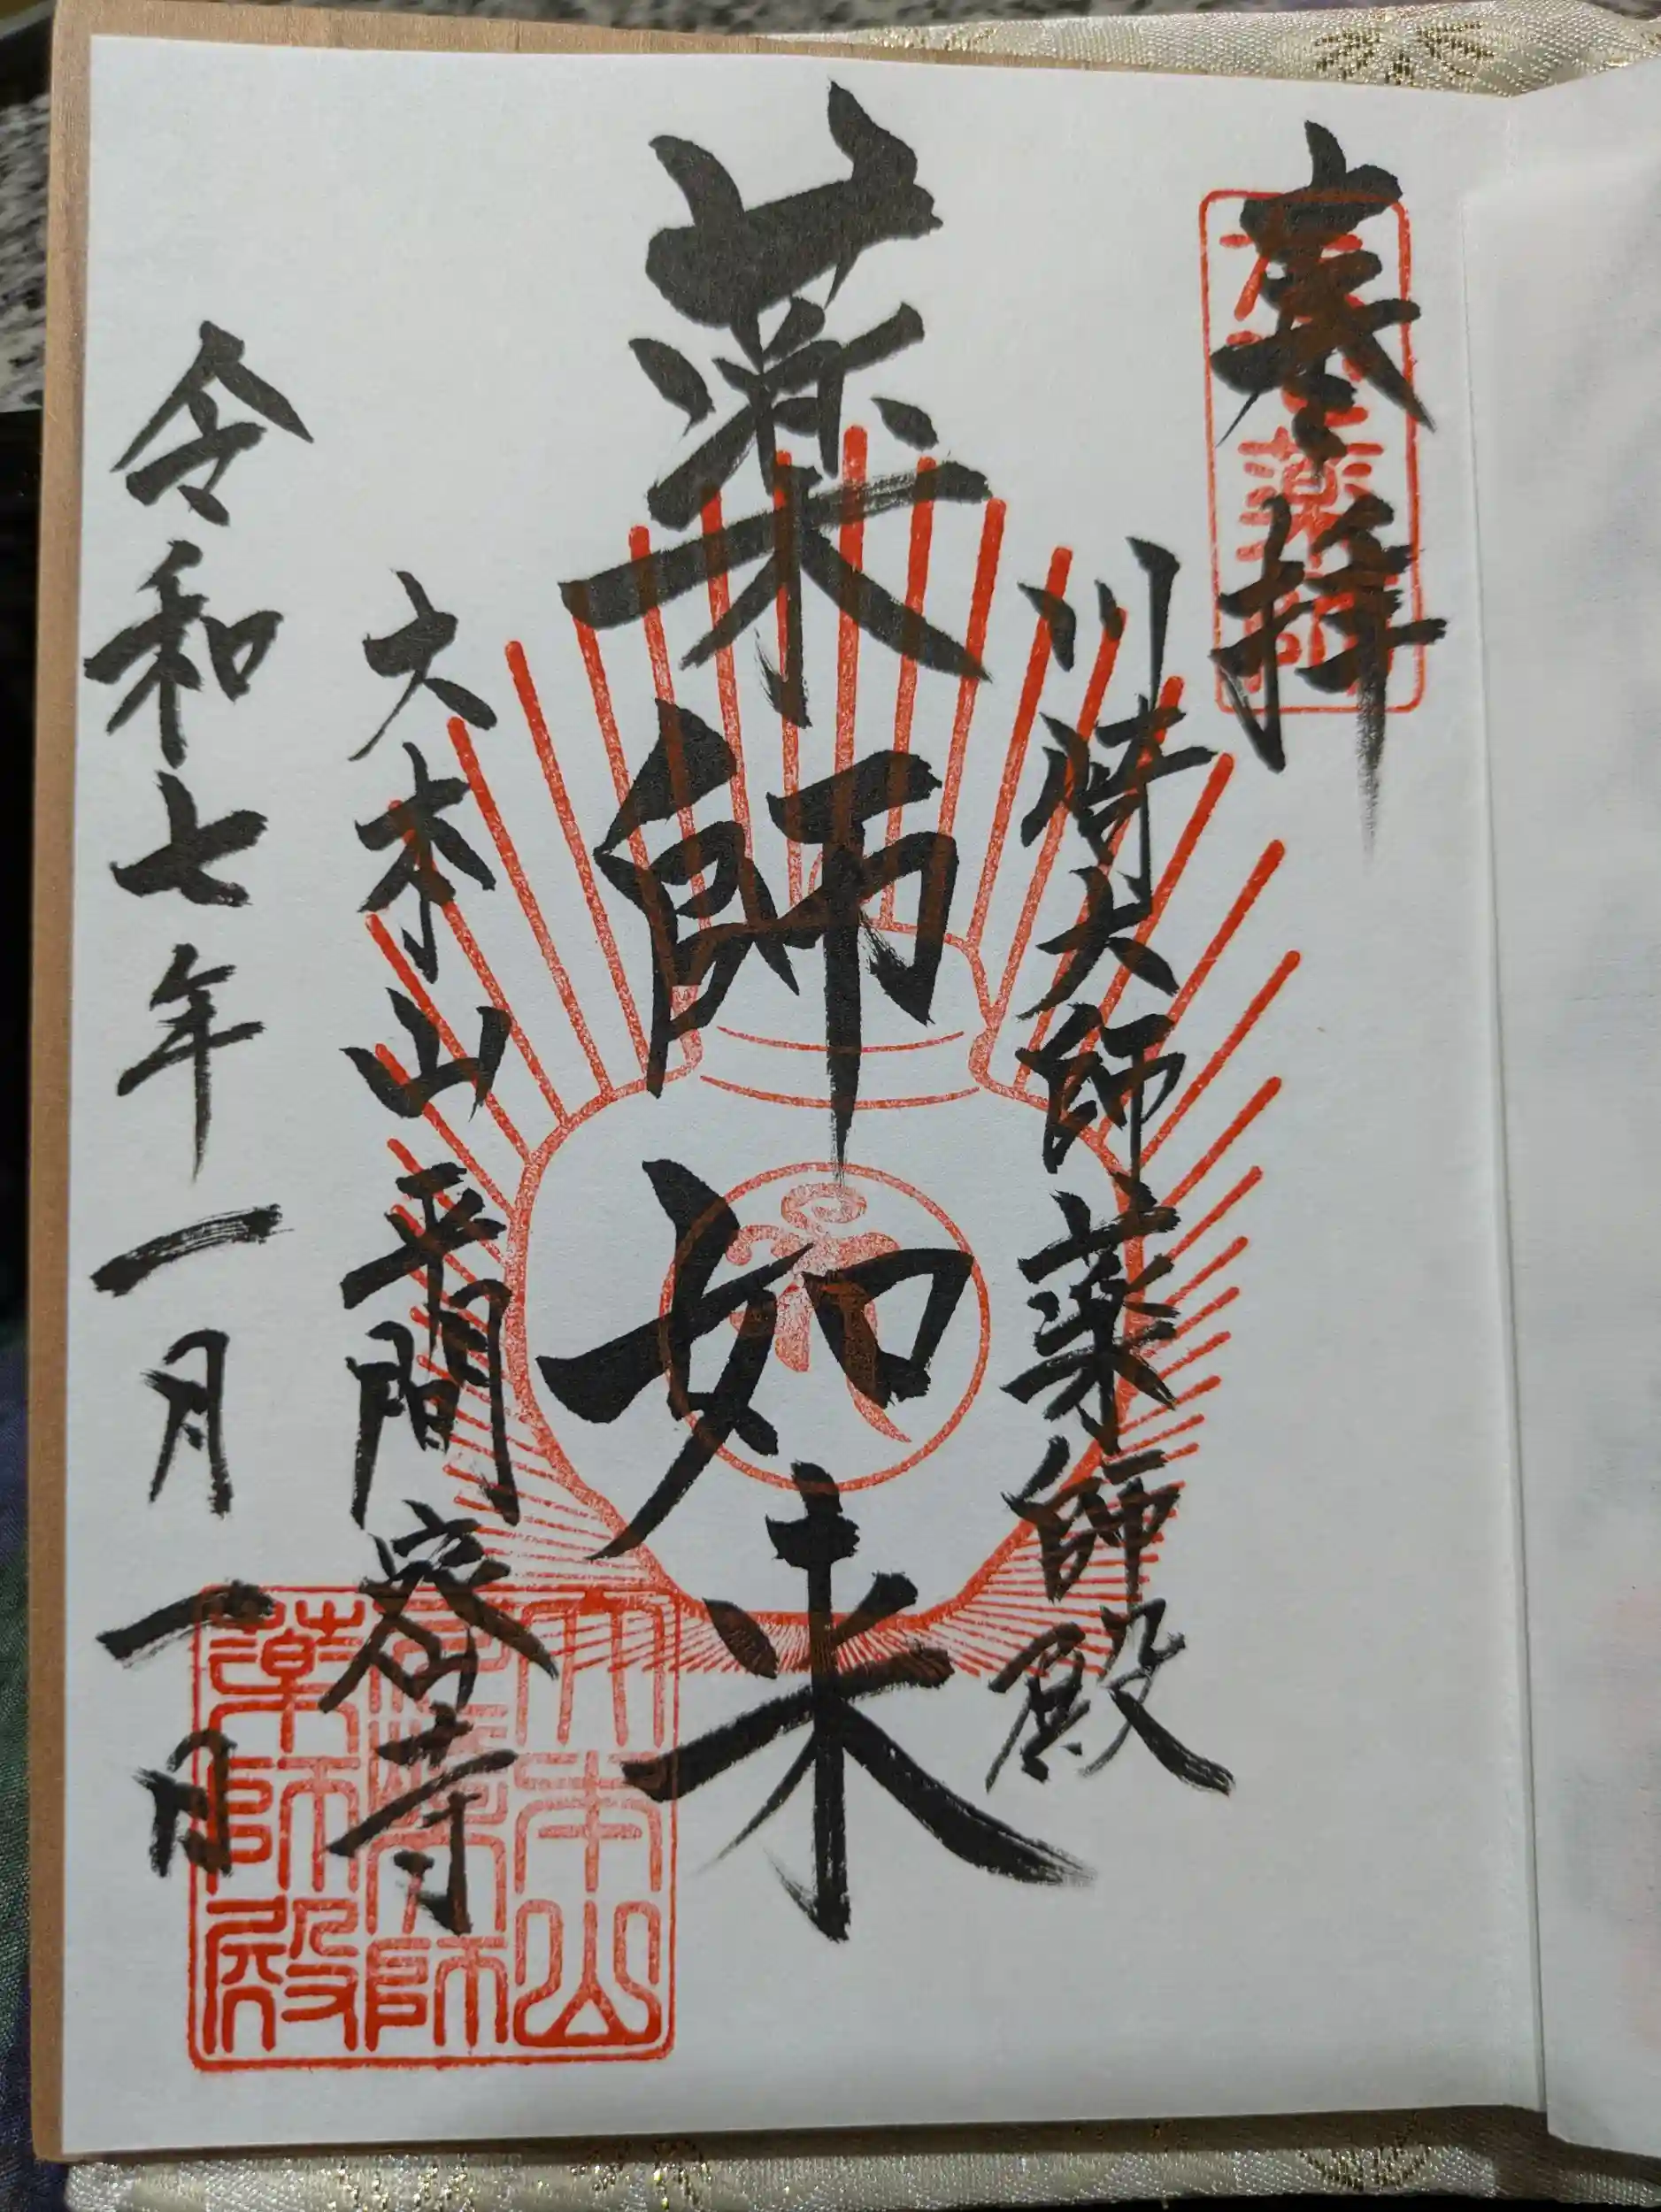 奉拝
川崎大師薬師殿
薬師如来
大本山平間密寺
令和七年一月一日
大本山
薬師殿